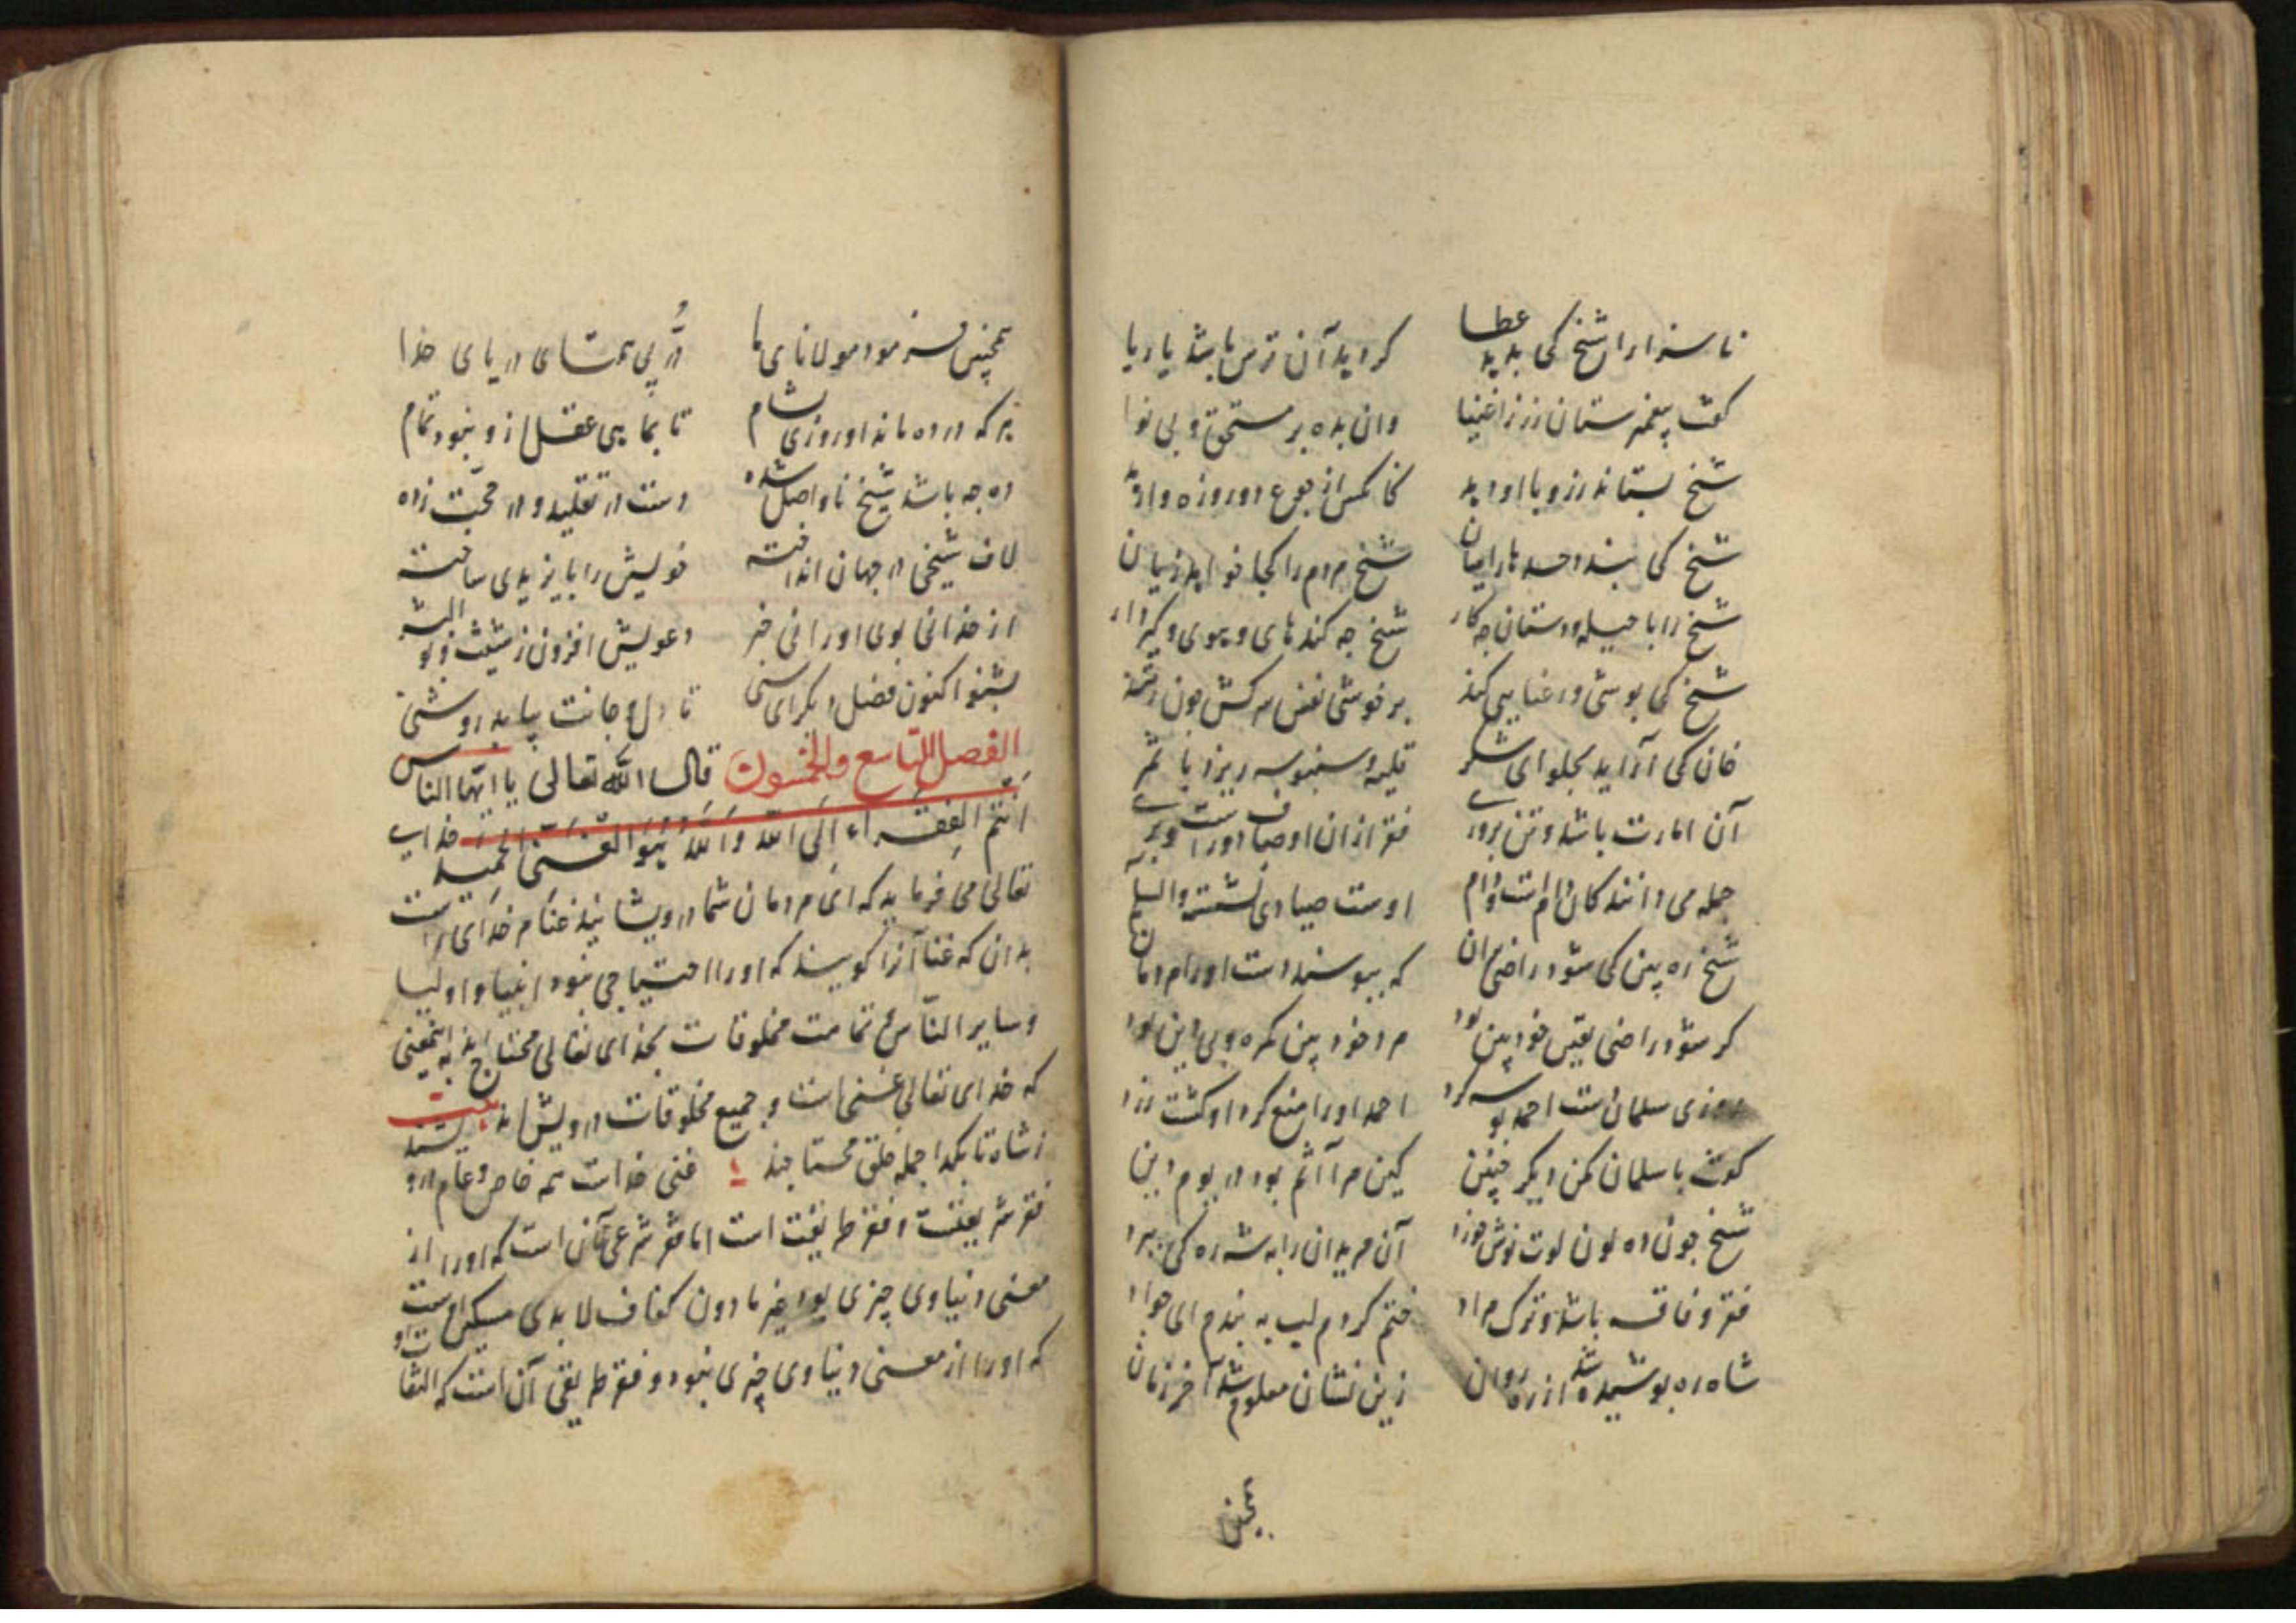 ناسزا را شیخ کی بدید عطا کر دید آن ترس باشد یا ریا
کفت پیغمبر ستان زر ز اغنیا وان بده بر مستحق و بی نوا
شیخ بستاند زر و با او دید از جوع دو روزه
شیخ کی بندد حسد را میان شیخ مردم را کجا خواهد زیان
شیخ را با حیله و دستان جه کار شیخ جه کند های و هوی و کیر و دار
شیخ کی بوشی و رعنایی کند بر خوشی نفس سرکش جون
خان کی آراید بحلوای شکر قلیه و سنبوسه ریزد با
آن امارت باشد و تن بروری فقر از آن اوصاف دورست و بری
جمله می دانند کان دام است دام اوست صیادی نشسته والسلام
شیخ ره بین کی شود راضی بران که ببوسند دست او را مردمان
کر شود راضی یقین خود بین بود مرد خود بین کمره و بی دین بود
روزی سلمان دست احمد بوسه کرد احمد او را منع کرد او کشت زرد
کفت با سلمان مکن دیکر چنین کین مرا آثم بود در یوم دین
شیخ جون ده لون لوت نوش خورد آن مریدان را به شه ره کی برد
فقر و فاقه باشد و ترک مراد ختم کردم لب به بندم ای جواد
شاه ره بوشیده شد از ره روان زین نشان معلوم شد آخر زمان
همچنین
همچنین فرمود مولانای ما دُرّ بی همتای دریای خدا
هر که در ده ماند او روزی شام تا بماهی عقل از و نبود تمام
ده جه باشد شیخ ناواصل شده دست در تقلید و در محجت زده
لاف شیخی در جهان انداخته خویش را بایزیدی ساخته
از خدا نی بوی او را نی خبر دعویش افزون ز شیث و بو البشر
بشنو اکنون فصل دیکر ای سنی تا دل و جانت بیابد روشنی
الفصل التاسع والخمسون قال الله تعالی یا ایها الناس
انتم الفقراء الی الله والله هو الغنی الحمید خدای
تعالی می فرماید که ای مردمان شما درویشانید غنا مر خدای راست
بدان که غنا آنرا کویند که او را احتیاجی نبود انبیا و اولیا
و سایر الناس تمامت مخلوقات بخدای تعالی محتاج اند به اینمعنی
که خدای تعالی غنی است و جمیع مخلوقات درویش اند بیت
ز شاه تا بکدا جمله خلق محتاجند غنی خداست همه خاص و عام دروشند
فقر شریعت و فقر طریقت است اما فقر شرعی آن است که او را از
معنی دنیاوی چیزی بود غیر ما دون کفاف لابدی مسکین است
که او را از معنی دنیاوی چیزی نبود و فقر طریقی آن است که التفات او